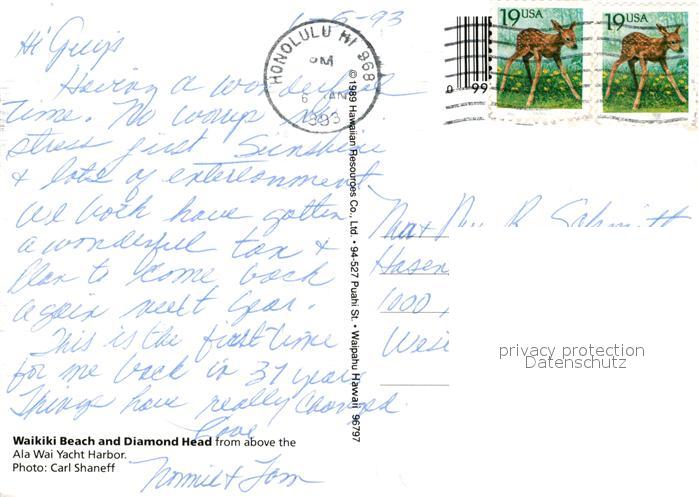 1-6-93
Hi Guys
Having a wonderful
time. No worrys no
stress just Sunshine
& lots of entertonment.
We both have gotten
a wonderful tan &
plan to come back
again next year.
This is the first time
for me back in 37 years
Things have really changed.
Love
Nonnie & Tom
Waikiki Beach and Diamond Head from above the
Ala Wai Yacht Harbor.
Photo: Carl Shaneff
© 1989 Hawaiian Resources Co., Ltd. • 94-527 Puahi St. • Waipahu Hawaii 96797
HONOLULU HI 968
PM
6 JAN
1993
0 99
19 USA
19 USA
R Schmitt
Hasen
1000
privacy protection
Datenschutz